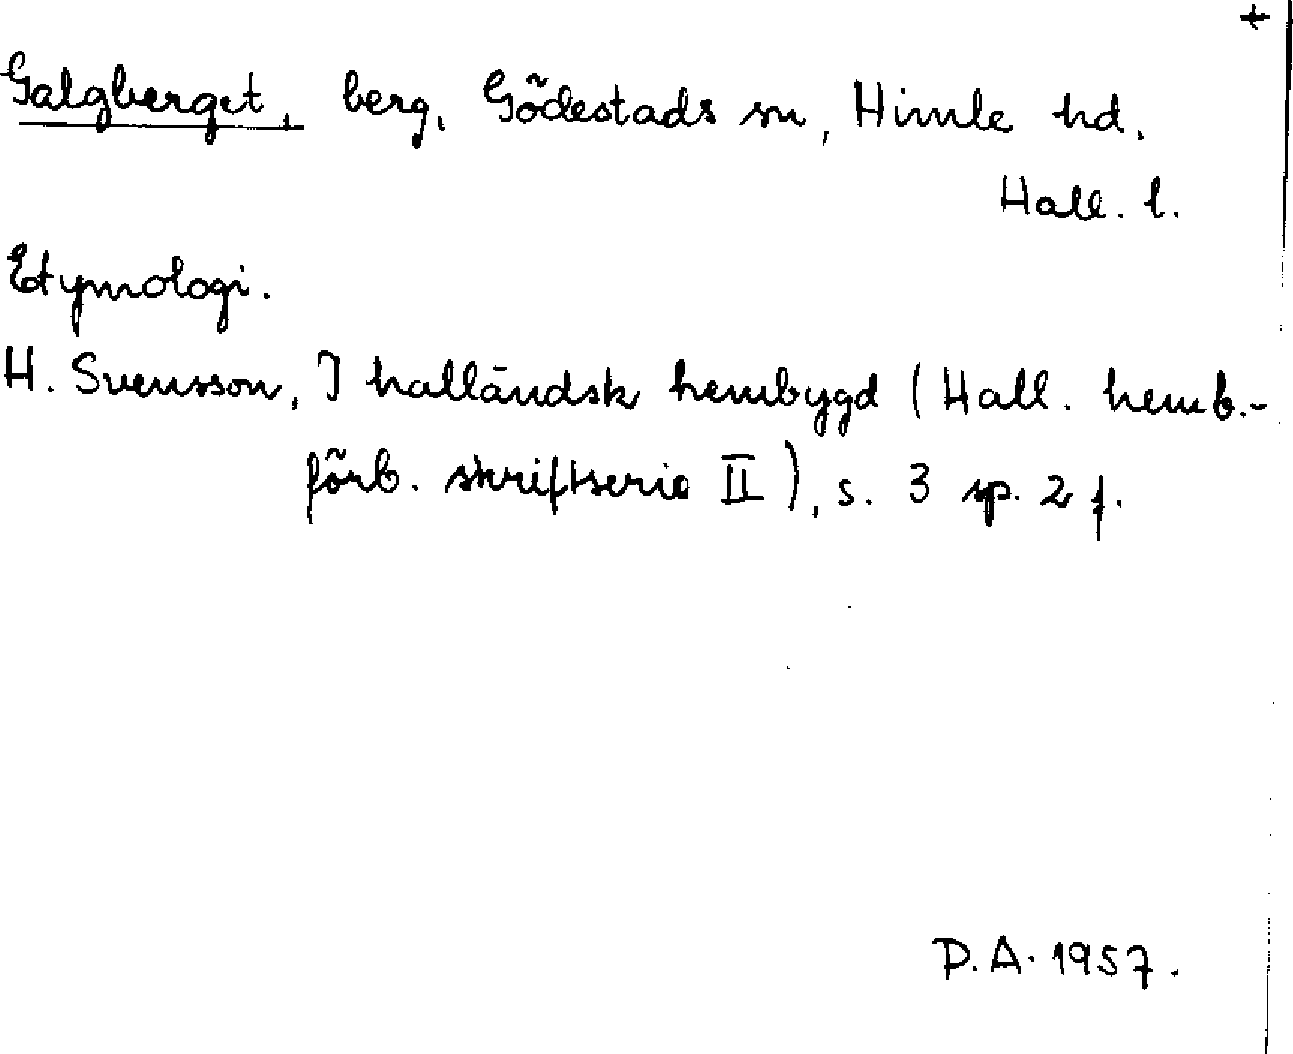 +
Galgberget, berg, Gödestads sn, Himle hd.
Hall. l.
Etymologi.
H. Svensson, I halländsk hembygd (Hall. hemb.-
förb. skriftserie II), s. 3 sp. 2 f.
P.A. 1957.